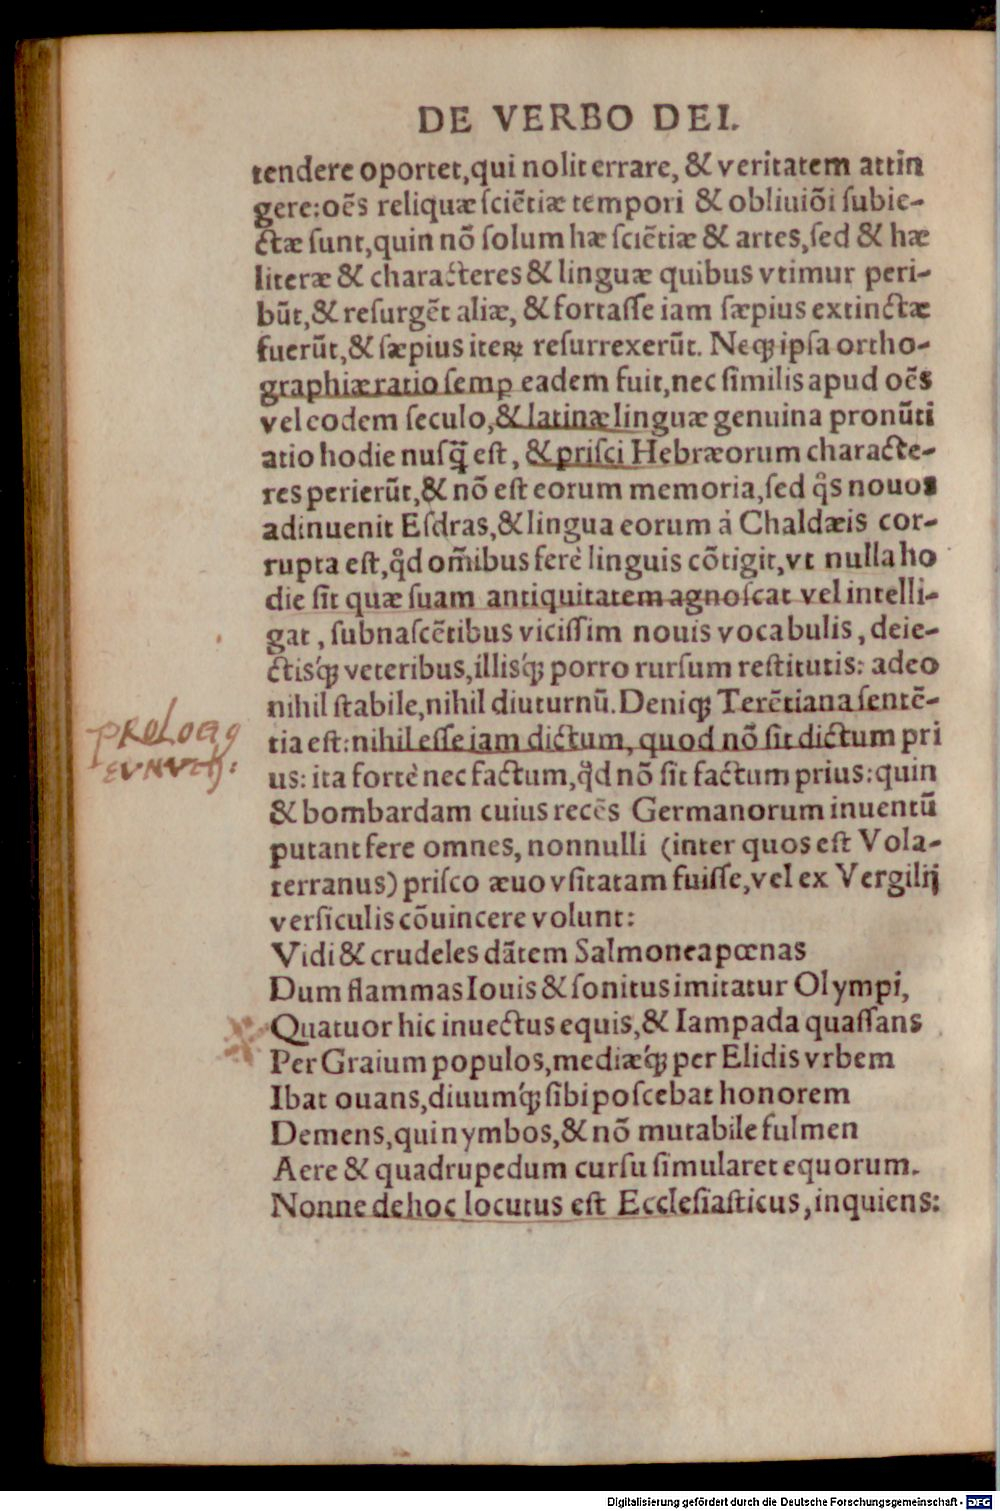 DE VERBO DEI.
tendere oportet, qui nolit errare, & veritatem attin
gere: oẽs reliquæ ſciẽtiæ tempori & obliuiõi ſubie-
ctæ ſunt, quin nõ ſolum hæ ſciẽtiæ & artes, ſed & hæ
literæ & characteres & linguæ quibus vtimur peri-
bũt, & reſurgẽt aliæ, & fortaſſe iam ſæpius extinctæ
fuerũt, & ſæpius iteꝝ reſurrexerũt. Neqꝫ ipſa ortho-
graphiæ ratio ſemꝑ eadem fuit, nec ſimilis apud oẽs
vel eodem ſeculo, & latinæ linguæ genuina pronũti
atio hodie nuſq̃ eſt, & priſci Hebræorum characte-
res perierũt, & nõ eſt eorum memoria, ſed q̊s nouos
adinuenit Eſdras, & lingua eorum á Chaldæis cor-
rupta eſt, qd̓ om̃ibus ferè linguis cõtigit, vt nulla ho
die ſit quæ ſuam antiquitatem agnoſcat vel intelli-
gat, ſubnaſcẽtibus viciſſim nouis vocabulis, deie-
ctisq́ꝫ veteribus, illisq́ꝫ porro rurſum reſtitutis: adeo
nihil ſtabile, nihil diuturnũ. Deniqꝫ Terẽtiana ſentẽ-
tia eſt: nihil eſſe iam dictum, quod nõ ſit dictum pri
PROLOGO
EVNVCHI:
us: ita fortè nec factum, qd̓ nõ ſit factum prius: quin
& bombardam cuius recẽs Germanorum inuentũ
putant fere omnes, nonnulli (inter quos eſt Vola-
terranus) priſco æuo vſitatam fuiſſe, vel ex Vergilij
verſiculis cõuincere volunt:
Vidi & crudeles dãtem Salmonea pœnas
Dum flammas Iouis & ſonitus imitatur Olympi,
Quatuor hic inuectus equis, & Iampada quaſſans
Per Graium populos, mediæq́ꝫ per Elidis vrbem
Ibat ouans, diuumq́ꝫ ſibi poſcebat honorem
Demens, qui nymbos, & nõ mutabile fulmen
Aere & quadrupedum curſu ſimularet equorum.
Nonne de hoc locutus eſt Eccleſiaſticus, inquiens:
Digitalisierung gefördert durch die Deutsche Forschungsgemeinschaft - DFG